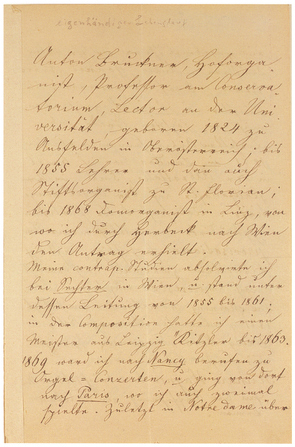 eigenhändiger Lebenslauf
Anton Bruckner, Hoforga-
nist, Professor am Conserva-
torium, Lector an der Uni
versität, geboren 1824 zu
Ansfelden in Oberösterreich; bis
1855 Lehrer und dan auch
Stiftsorganist zu St. Florian;
bis 1868 Domorganist in Linz, von
wo ich durch Herbeck nach Wien
den Antrag erhielt.
Meine contrap.-Studien absolvierte ich
bei Sechter in Wien, u stand unter
dessen Leitung von 1855 bis 1861;
in der Composition hatte ich einen
Meister aus Leipzig Kitzler bis 1863.
1869 ward ich nach Nancy berufen zu
Orgel=Conzerten, u ging von dort
nach Paris, wo ich auch zweimal
spielte. Zuletzt in Notre dame über